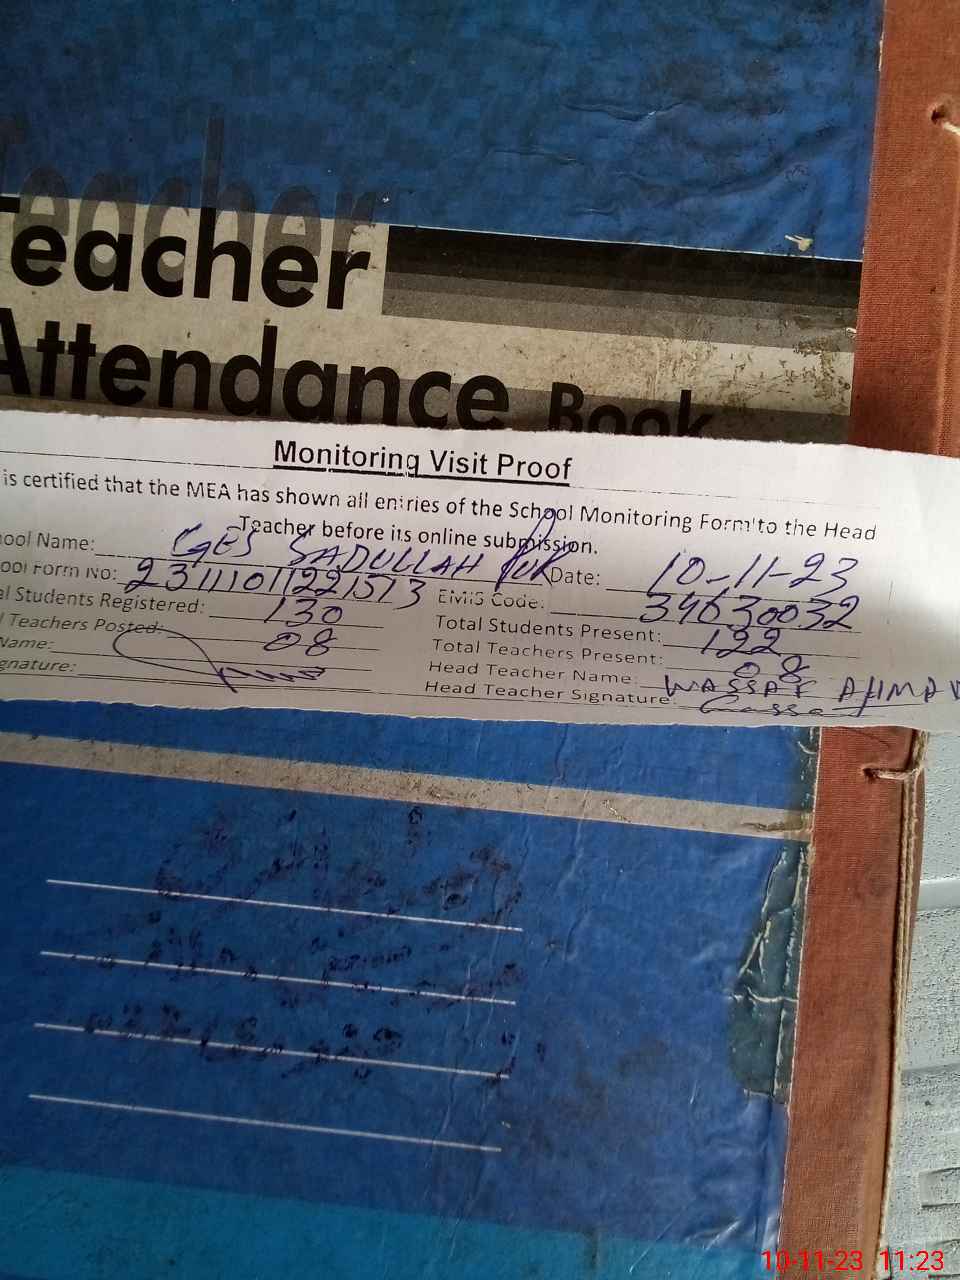 Teacher
Teacher
Attendance Book
Monitoring Visit Proof
is certified that the MEA has shown all entries of the School Monitoring Form to the Head
Teacher before its online submission.
ool Name: GES SADULLAH PUR Date: 10-11-23
ool Form No: 231110112215 EMIS Code: 34630032
al Students Registered: 130 Total Students Present: 122
l Teachers Posted: 08 Total Teachers Present: 08
Name: Head Teacher Name: WASSAF AHMAD
gnature: Head Teacher Signature:
10-11-23 11:23